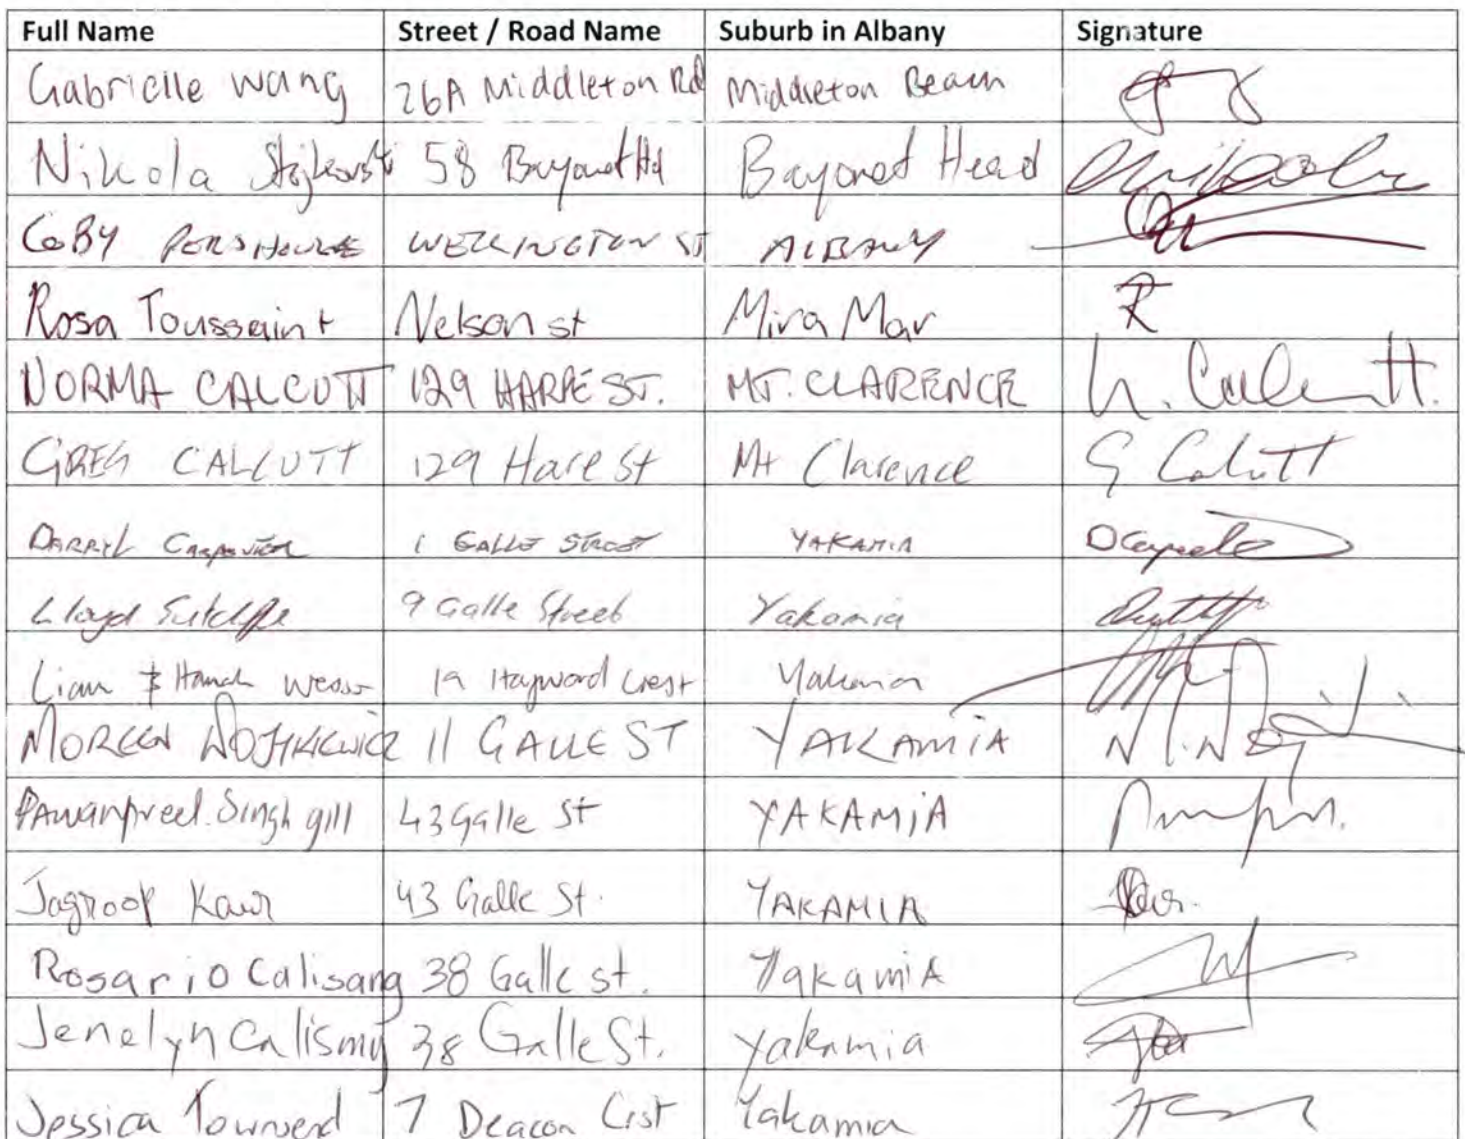 Full Name Street / Road Name Suburb in Albany Signature
Gabrielle Wang 26A Middleton Rd Middleton Beach
Nikola 58 Bayonet Hd Bayonet Head
COBY PERSHOUSE WELLINGTON ST ALBANY
Rosa Toussaint Nelson st Mira Mar R
NORMA CALCUTT 129 HARE ST. MT. CLARENCE N. Calcutt.
GREG CALCUTT 129 Hare St Mt Clarence G Calcutt
DARRYL CARPENTER 1 GALLE STREET YAKAMIA
Lloyd Sutcliffe 9 Galle Street Yakamia
Liam & Hannah 19 Hayword Crest Yakamia
MOREEN WOJTKIEWICZ 11 GALLE ST YAKAMIA
PAwanpreet.Singh gill 43 Galle St YAKAMiA
Jagroop Kaur 43 Galle St. YAKAMIA
Rosario Calisang 38 Galle st. YakamiA
Jenelyn Calisang 38 Galle St. yakamia
Jessica Townend 7 Deacon Crst Yakamia